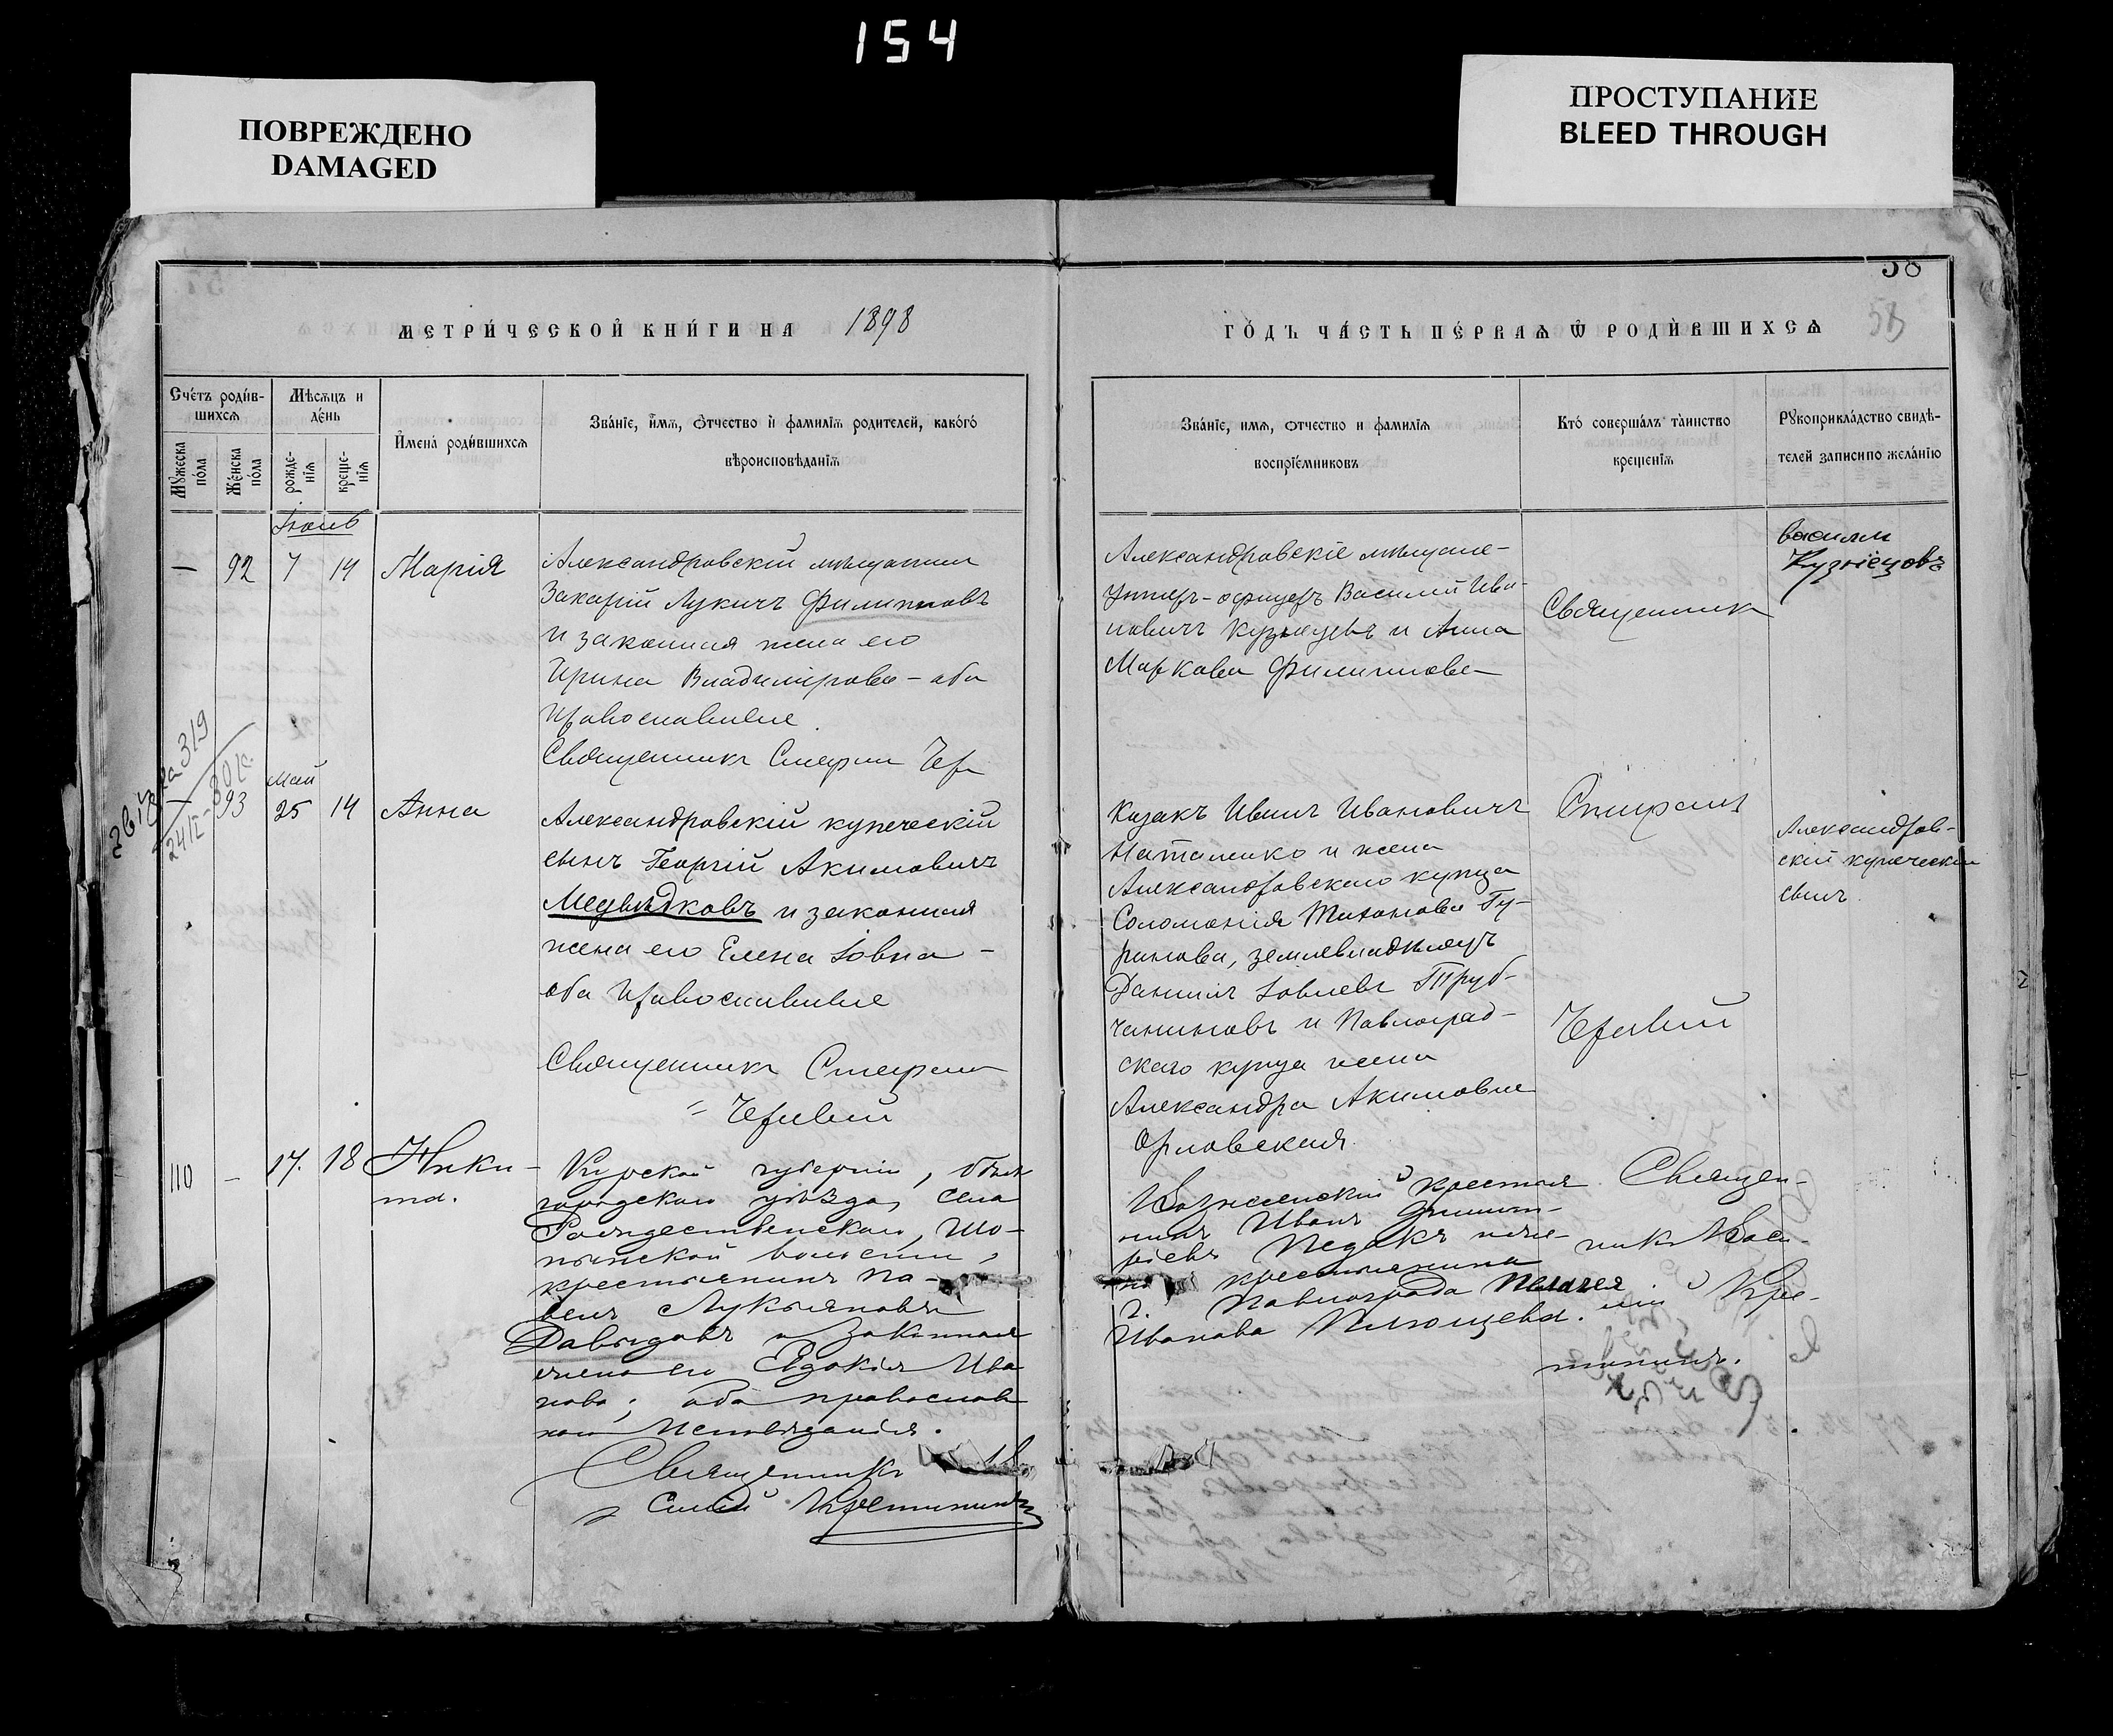 154
ПОВРЕЖДЕНО
DAMAGED
ПРОСТУПАНИЕ
BLEED THROUGH
58
МЕТРИ́ЧЕСКОЙ КНИ́ГИ НА 1898
ГО́ДЪ ЧА́СТЬ ПЕ́РВАѦ Ѿ РОДИ́ВШИХСѦ
Сче́тъ роди́в-
шихсѧ
Мѣсѧцъ и
де́нь
И҆мена́ роди́вшихсѧ
Зва́нїе, и҆́мѧ, ѻ҆́тчество и҆ фамилїѧ родителей, како́гѡ
вѣроисповѣ́данїѧ
Мꙋ́жеска
по́ла
Же́нска
по́ла
рожде-
нїѧ
креще-
нїѧ
Зва́нїе, имѧ, ѻтчество и фамилїѧ
воспрїе́мниковъ
Кто́ соверша́лъ та́инство
креще́нїѧ
Рꙋкоприкла́дство свидѣ-
телей записи по жела́нїю
Іюнь
— 92 7 14 Марія
Александровскій мѣщанинъ
Захарій Лукичъ Филипповъ
и законная жена его
Ирина Владимірова – оба
православные
Священникъ Стефанъ Чер
Александровскіе мѣщане –
унтеръ-офицеръ Василій Ива-
новичъ Кузнецовъ и Анна
Маркова Филиппова
Священникъ
Василій
Кузнецовъ
Май
— 93 25 14 Анна
Александровскій купеческій
сынъ Георгій Акимовичъ
Медвѣдковъ и законная
жена его Елена Іовна –
оба православные
Священникъ Стефанъ
Казакъ Иванъ Ивановичъ
Наталенко и жена
Александровскаго купца
Соломонія Тихонова Гу-
ринова, землевладѣлецъ
Даніилъ Іовлевъ Труб-
чаниновъ и Павлоград-
скаго купца жена
Александра Акимовна
Орловская
Стефанъ
Александров-
скій купеческій
сынъ
110 – 17. 18 Ники-
та.
Курской губерніи, Бѣл-
городскаго уѣзда, села
Рождественскаго, Шо-
пинской волости,
крестьянинъ Па-
велъ Лукьяновъ
Давыдовъ и законная
жена его Евдокія Ива
нова; оба православ
наго исповѣданія.
Священникъ
Вознесенскій крестья
нинъ Иванъ Димит-
ріевъ Педакъ и же-
на крестьянина
г. Павлограда Пелагея
Иванова
Священ-
никъ Васи-
лій Кре-